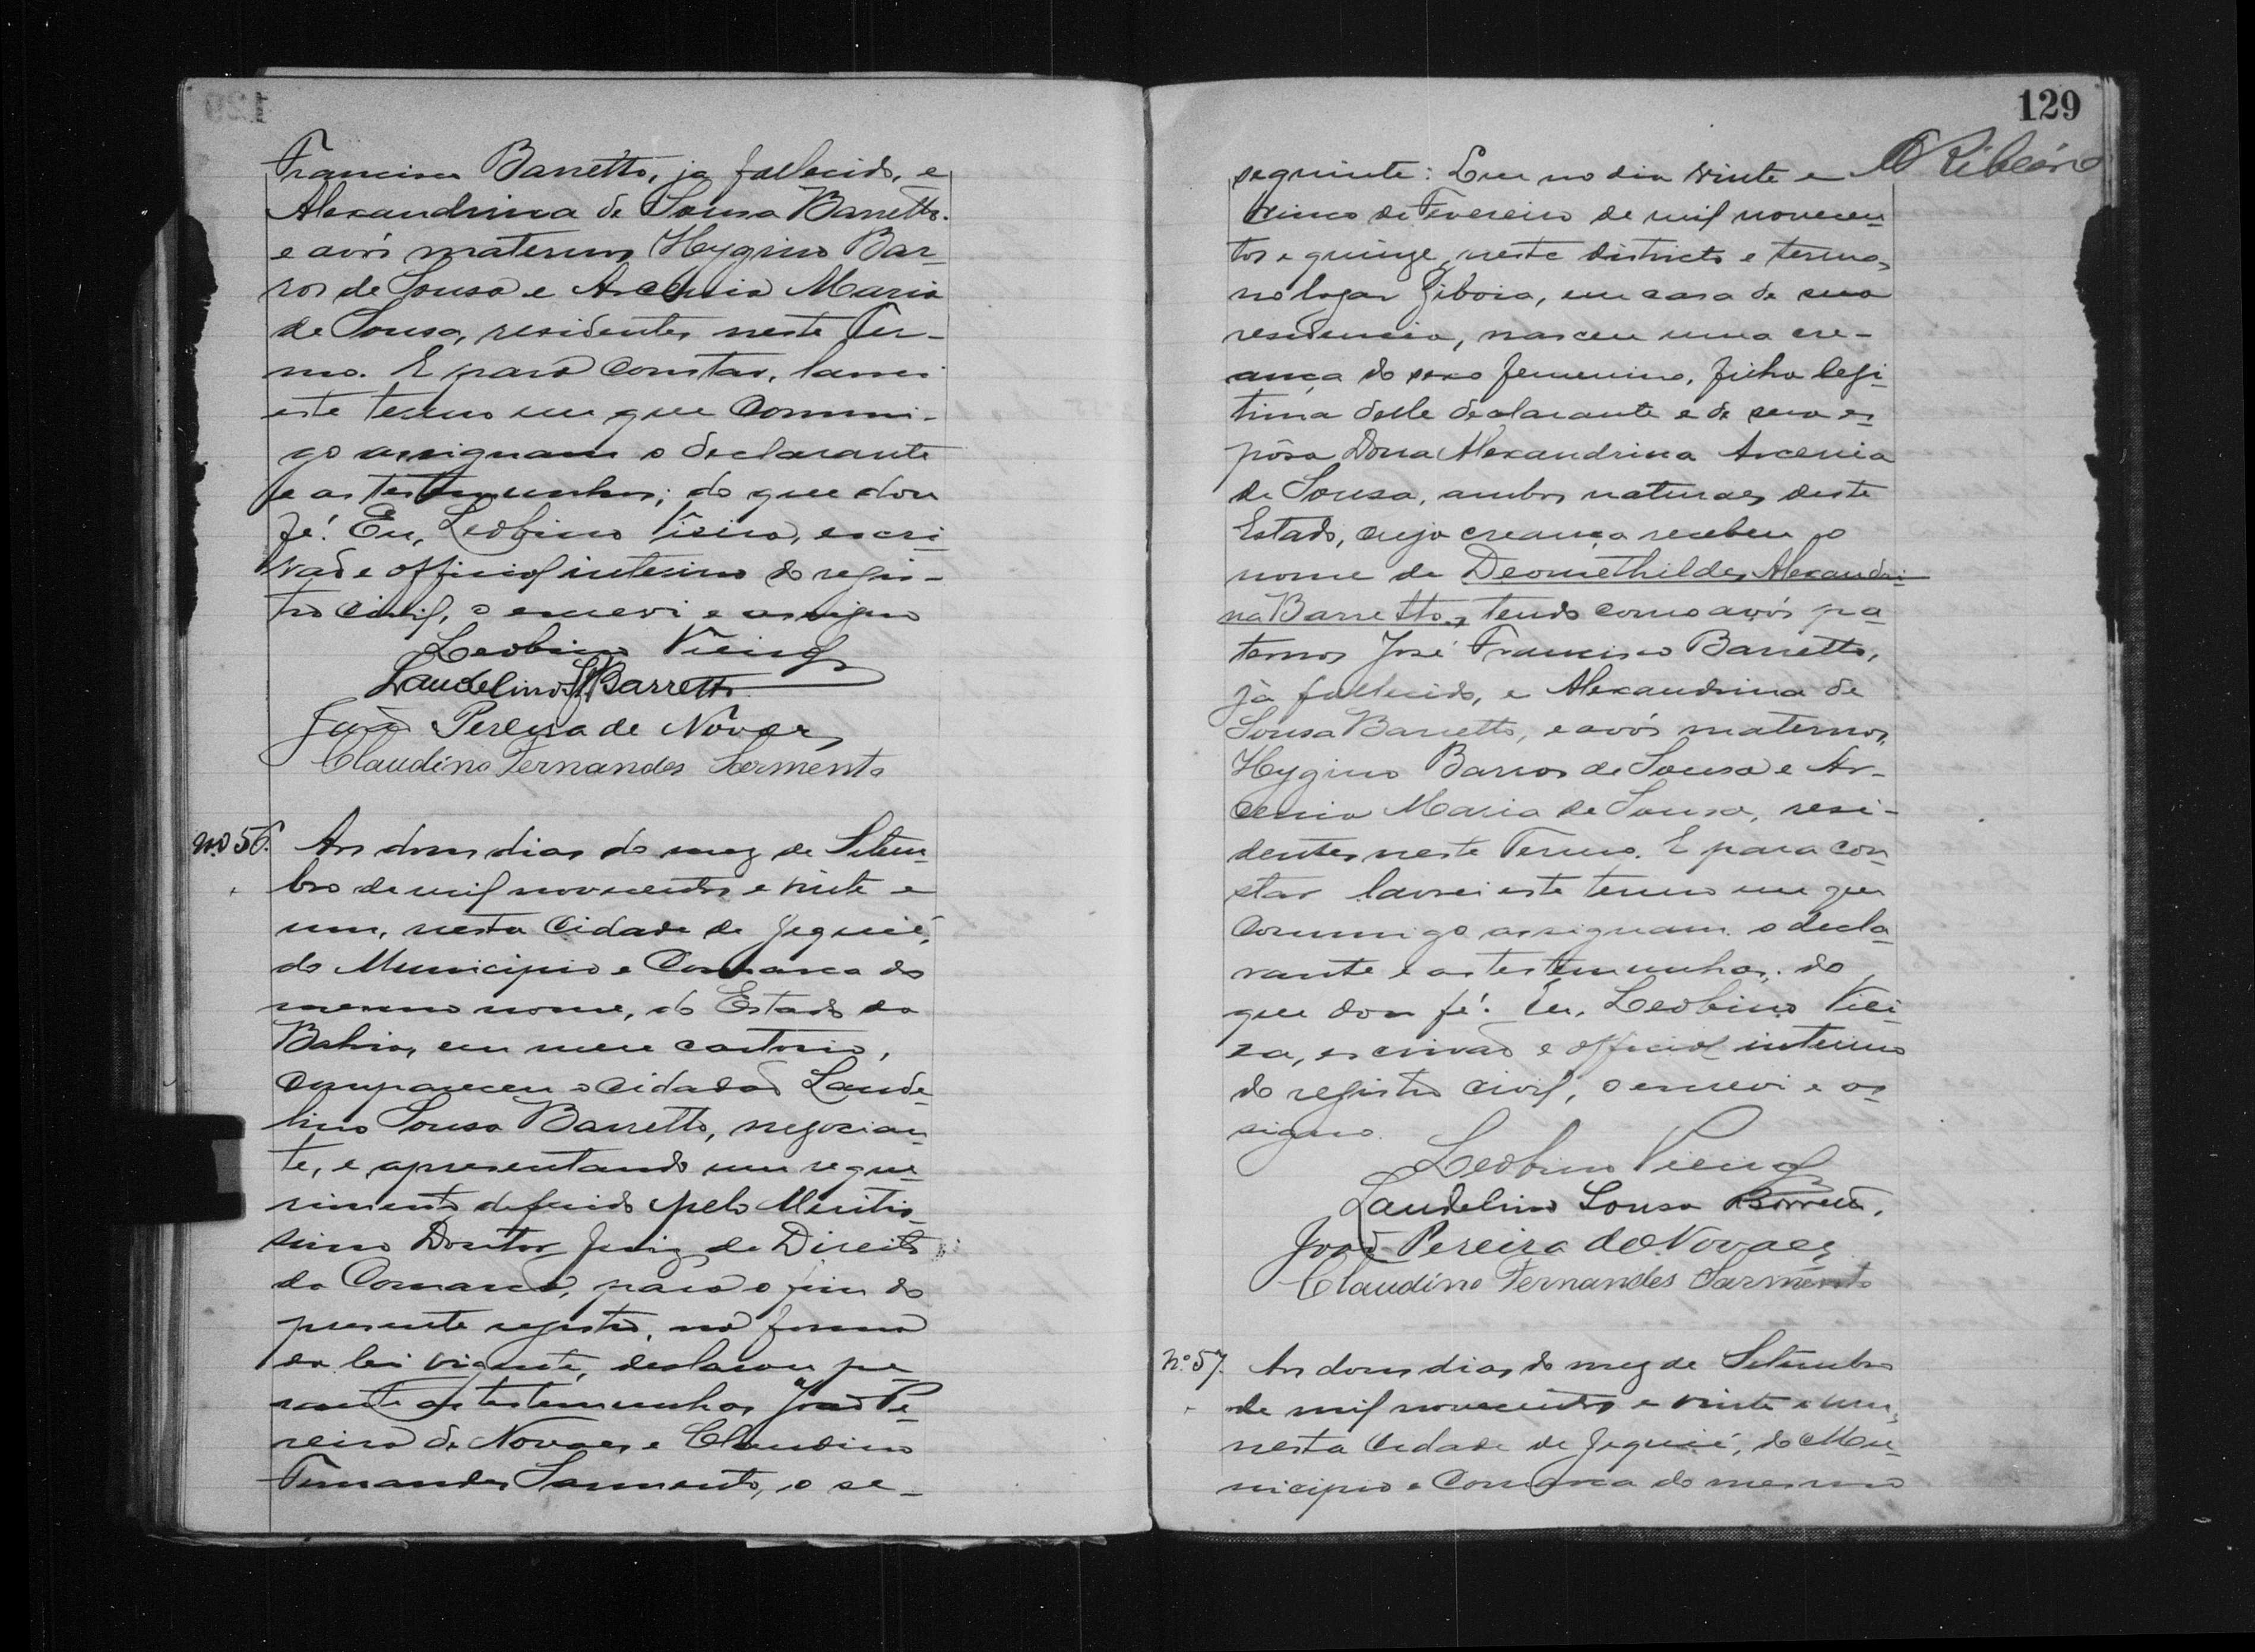 129
Francisco Barretto, ja fallecido, e
Alexandrina de Sousa Barretto.
e avós maternos Hygino Bar-
ros de Sousa e Arcenia Maria
de Sousa, residentes neste Ter-
mo. E para constar, lavrei
este termo em que commi-
go assignam o declarante
e as testemunhas; do que dou
fé. Eu, Leobino Vieira, escri-
vão e official interino do regis-
tro civil, o escrevi e assigno
Leobino Vieira
Laudelino S. Barretto
João Pereira de Novaes
Claudino Fernandes Sarmento
Nº 56. Aos dous dias do mez de Setem-
bro de mil novecentos e vinte e
um, nesta Cidade de Jequié,
do Municipio e Comarca do
mesmo nome, do Estado da
Bahia, em meu cartorio,
compareceu o cidadão Laude-
lino Sousa Barretto, negocian-
te, e apresentando um reque-
rimento deferido pelo Meritis-
simo Doutor Juiz de Direito
da Comarca, para o fim do
presente registro, na forma
da lei vigente, declarou pe-
rante as testemunhas João Pe-
reira de Novaes e Claudino
Fernandes Sarmento, o se-
129
O Ribeiro
seguinte: Que no dia vinte e
cinco de Fevereiro de mil novecen-
tos e quinze, neste districto e termo,
no logar Giboia, em casa de sua
residencia, nasceu uma cre-
ança do sexo femenino, filha legi-
tima delle declarante e de sua es-
pôsa Dona Alexandrina Arcenia
de Sousa, ambos naturaes deste
Estado, cuja creança recebeu o
nome de Deomethildes Alexandri-
na Barretto, tendo como avós pa-
ternos José Francisco Barretto,
já fallecido, e Alexandrina de
Sousa Barretto, e avós maternos,
Hygino Barros de Sousa e Ar-
cenia Maria de Sousa, resi-
dentes neste Termo. E para con-
star lavrei este termo em que
commigo assignam o decla-
rante e as testemunhas; do
que dou fé. Eu, Leobino Viei-
ra, escrivão e official interino
do registro civil, o escrevi e as-
signo.
Leobino Vieira
Laudelino Sousa Barretto.
João Pereira de Novaes
Claudino Fernandes Sarmento
Nº 57. Aos dous dias do mez de Setembro
de mil novecentos e vinte e um,
nesta Cidade de Jequié, do Mu-
nicipio e Comarca do mesmo